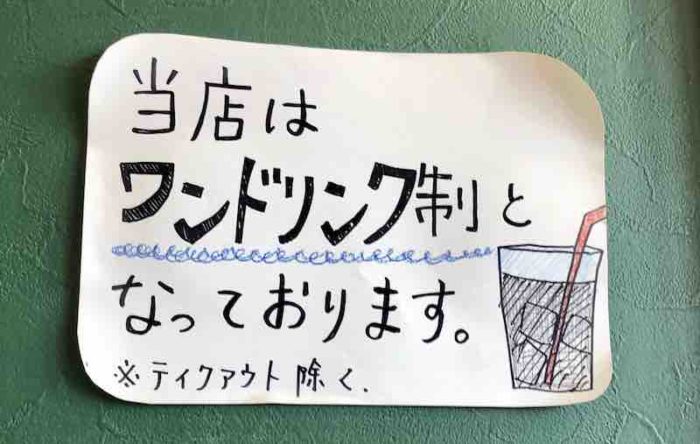 当店は
ワンドリンク制と
なっております。
※ティクアウト除く.